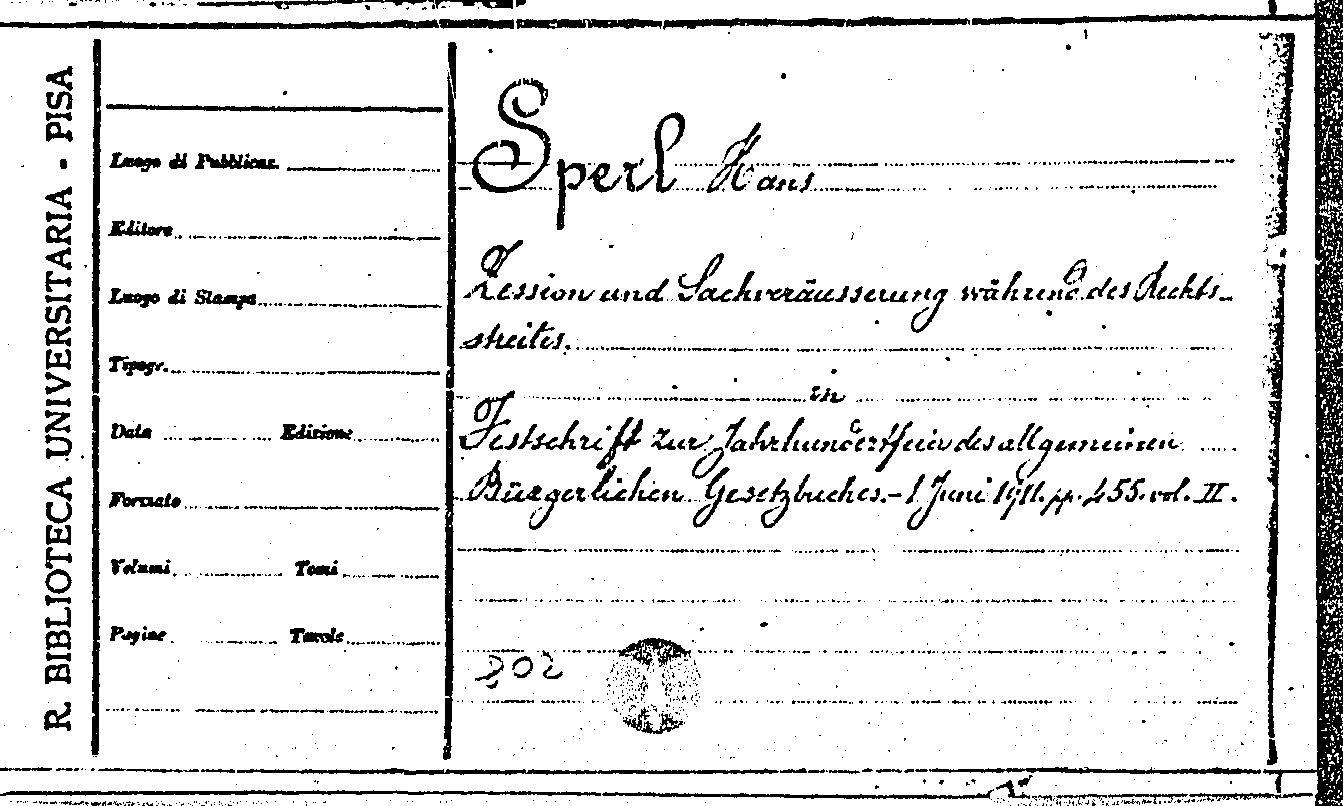 R. BIBLIOTECA UNIVERSITARIA - PISA
Luogo di Pubblicaz.
Editore
Luogo di Stampa
Tipogr.
Data Edizione
Formato
Volumi Tomi
Pagine Tavole
Sperl Hans
Zession und Sachveräusserung während des Rechts-
streites.
in
Festschrift zur Jahrhundertfeier des allgemeinen
Bürgerlichen Gesetzbuches.- 1 Juni 1911. pp. 455. vol. II.
202